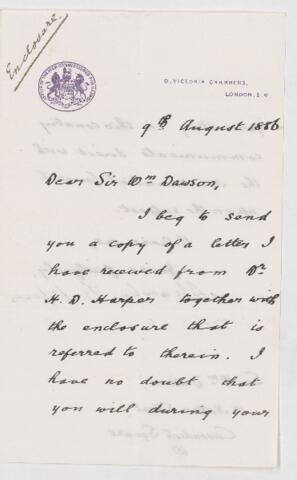 Enclosure.
9, VICTORIA CHAMBERS,
LONDON, S.W.
9th August 1886
Dear Sir Wm Dawson,
I beg to send
you a copy of a letter I
have received from Dr
H. D. Harper together with
the enclosure that is
referred to therein. I
have no doubt that
you will during your